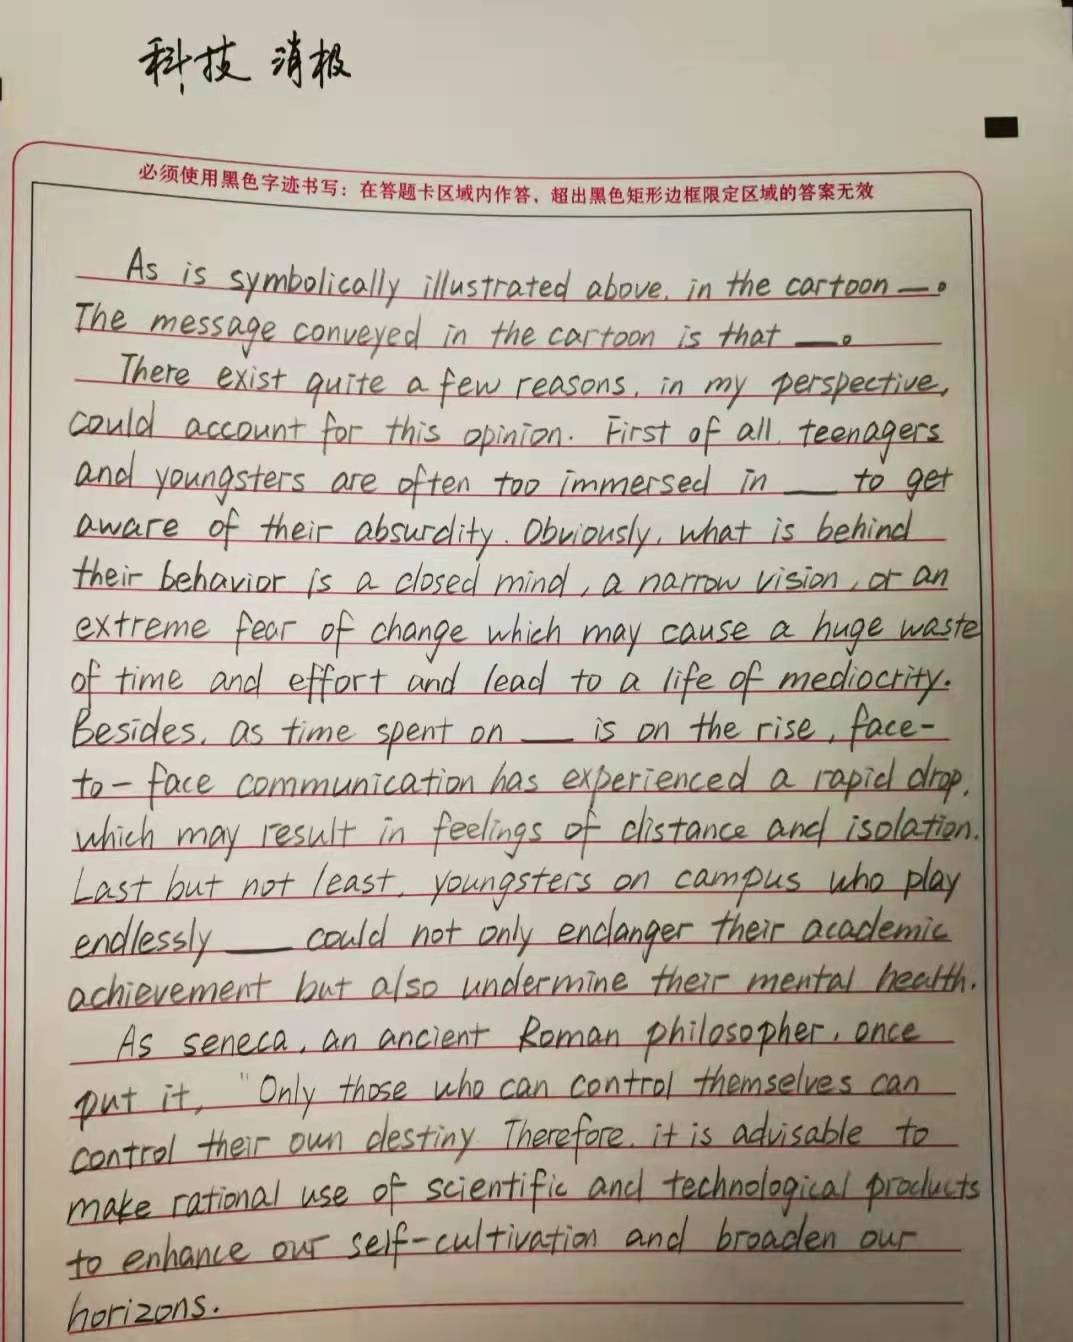 科技 消极
必须使用黑色字迹书写：在答题卡区域内作答，超出黑色矩形边框限定区域的答案无效
As is symbolically illustrated above, in the cartoon __。
The message conveyed in the cartoon is that __。
There exist quite a few reasons, in my perspective,
could account for this opinion. First of all, teenagers
and youngsters are often too immersed in __ to get
aware of their absurdity. Obviously, what is behind
their behavior is a closed mind, a narrow vision, or an
extreme fear of change which may cause a huge waste
of time and effort and lead to a life of mediocrity.
Besides, as time spent on __ is on the rise, face-
to-face communication has experienced a rapid drop,
which may result in feelings of distance and isolation.
Last but not least, youngsters on campus who play
endlessly __ could not only endanger their academic
achievement but also undermine their mental health.
As seneca, an ancient Roman philosopher, once
put it, "Only those who can control themselves can
control their own destiny Therefore, it is advisable to
make rational use of scientific and technological products
to enhance our self-cultivation and broaden our
horizons.